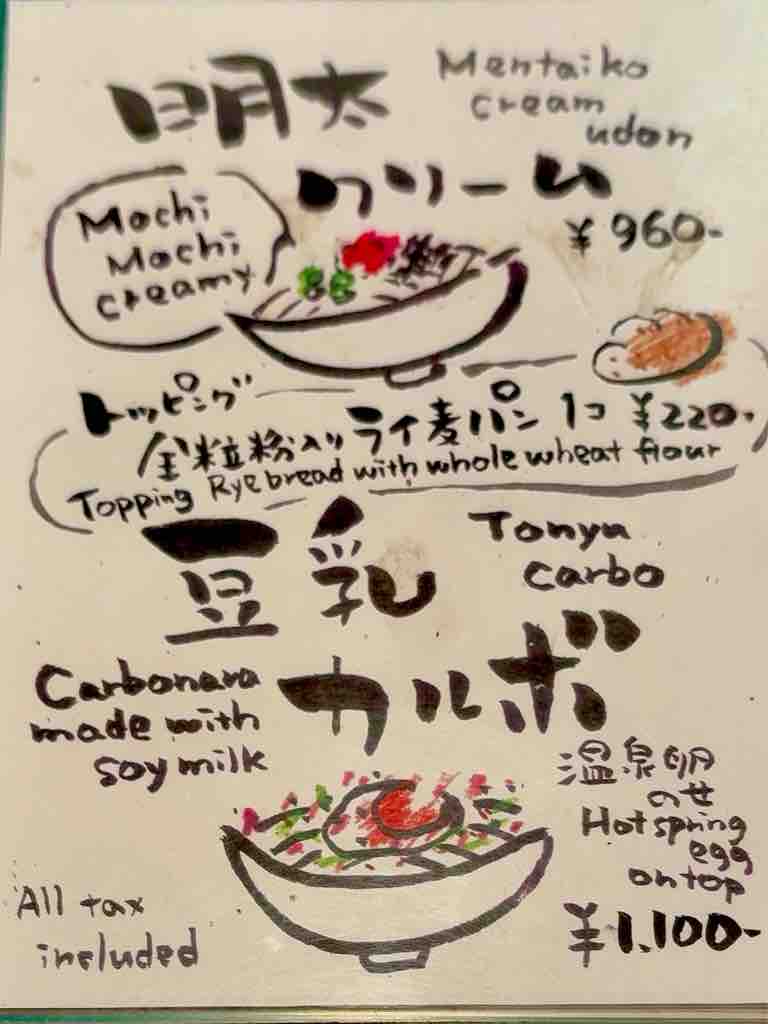 明太
Mentaiko
cream
udon
クリーム
Mochi
Mochi
creamy
¥960-
トッピング
全粒粉入りライ麦パン 1コ ¥220-
Topping Rye bread with whole wheat flour
豆乳
Tonyu
carbo
カルボ
Carbonara
made with
soy milk
温泉卵
のせ
Hot spring
egg
on top
¥1.100-
All tax
included